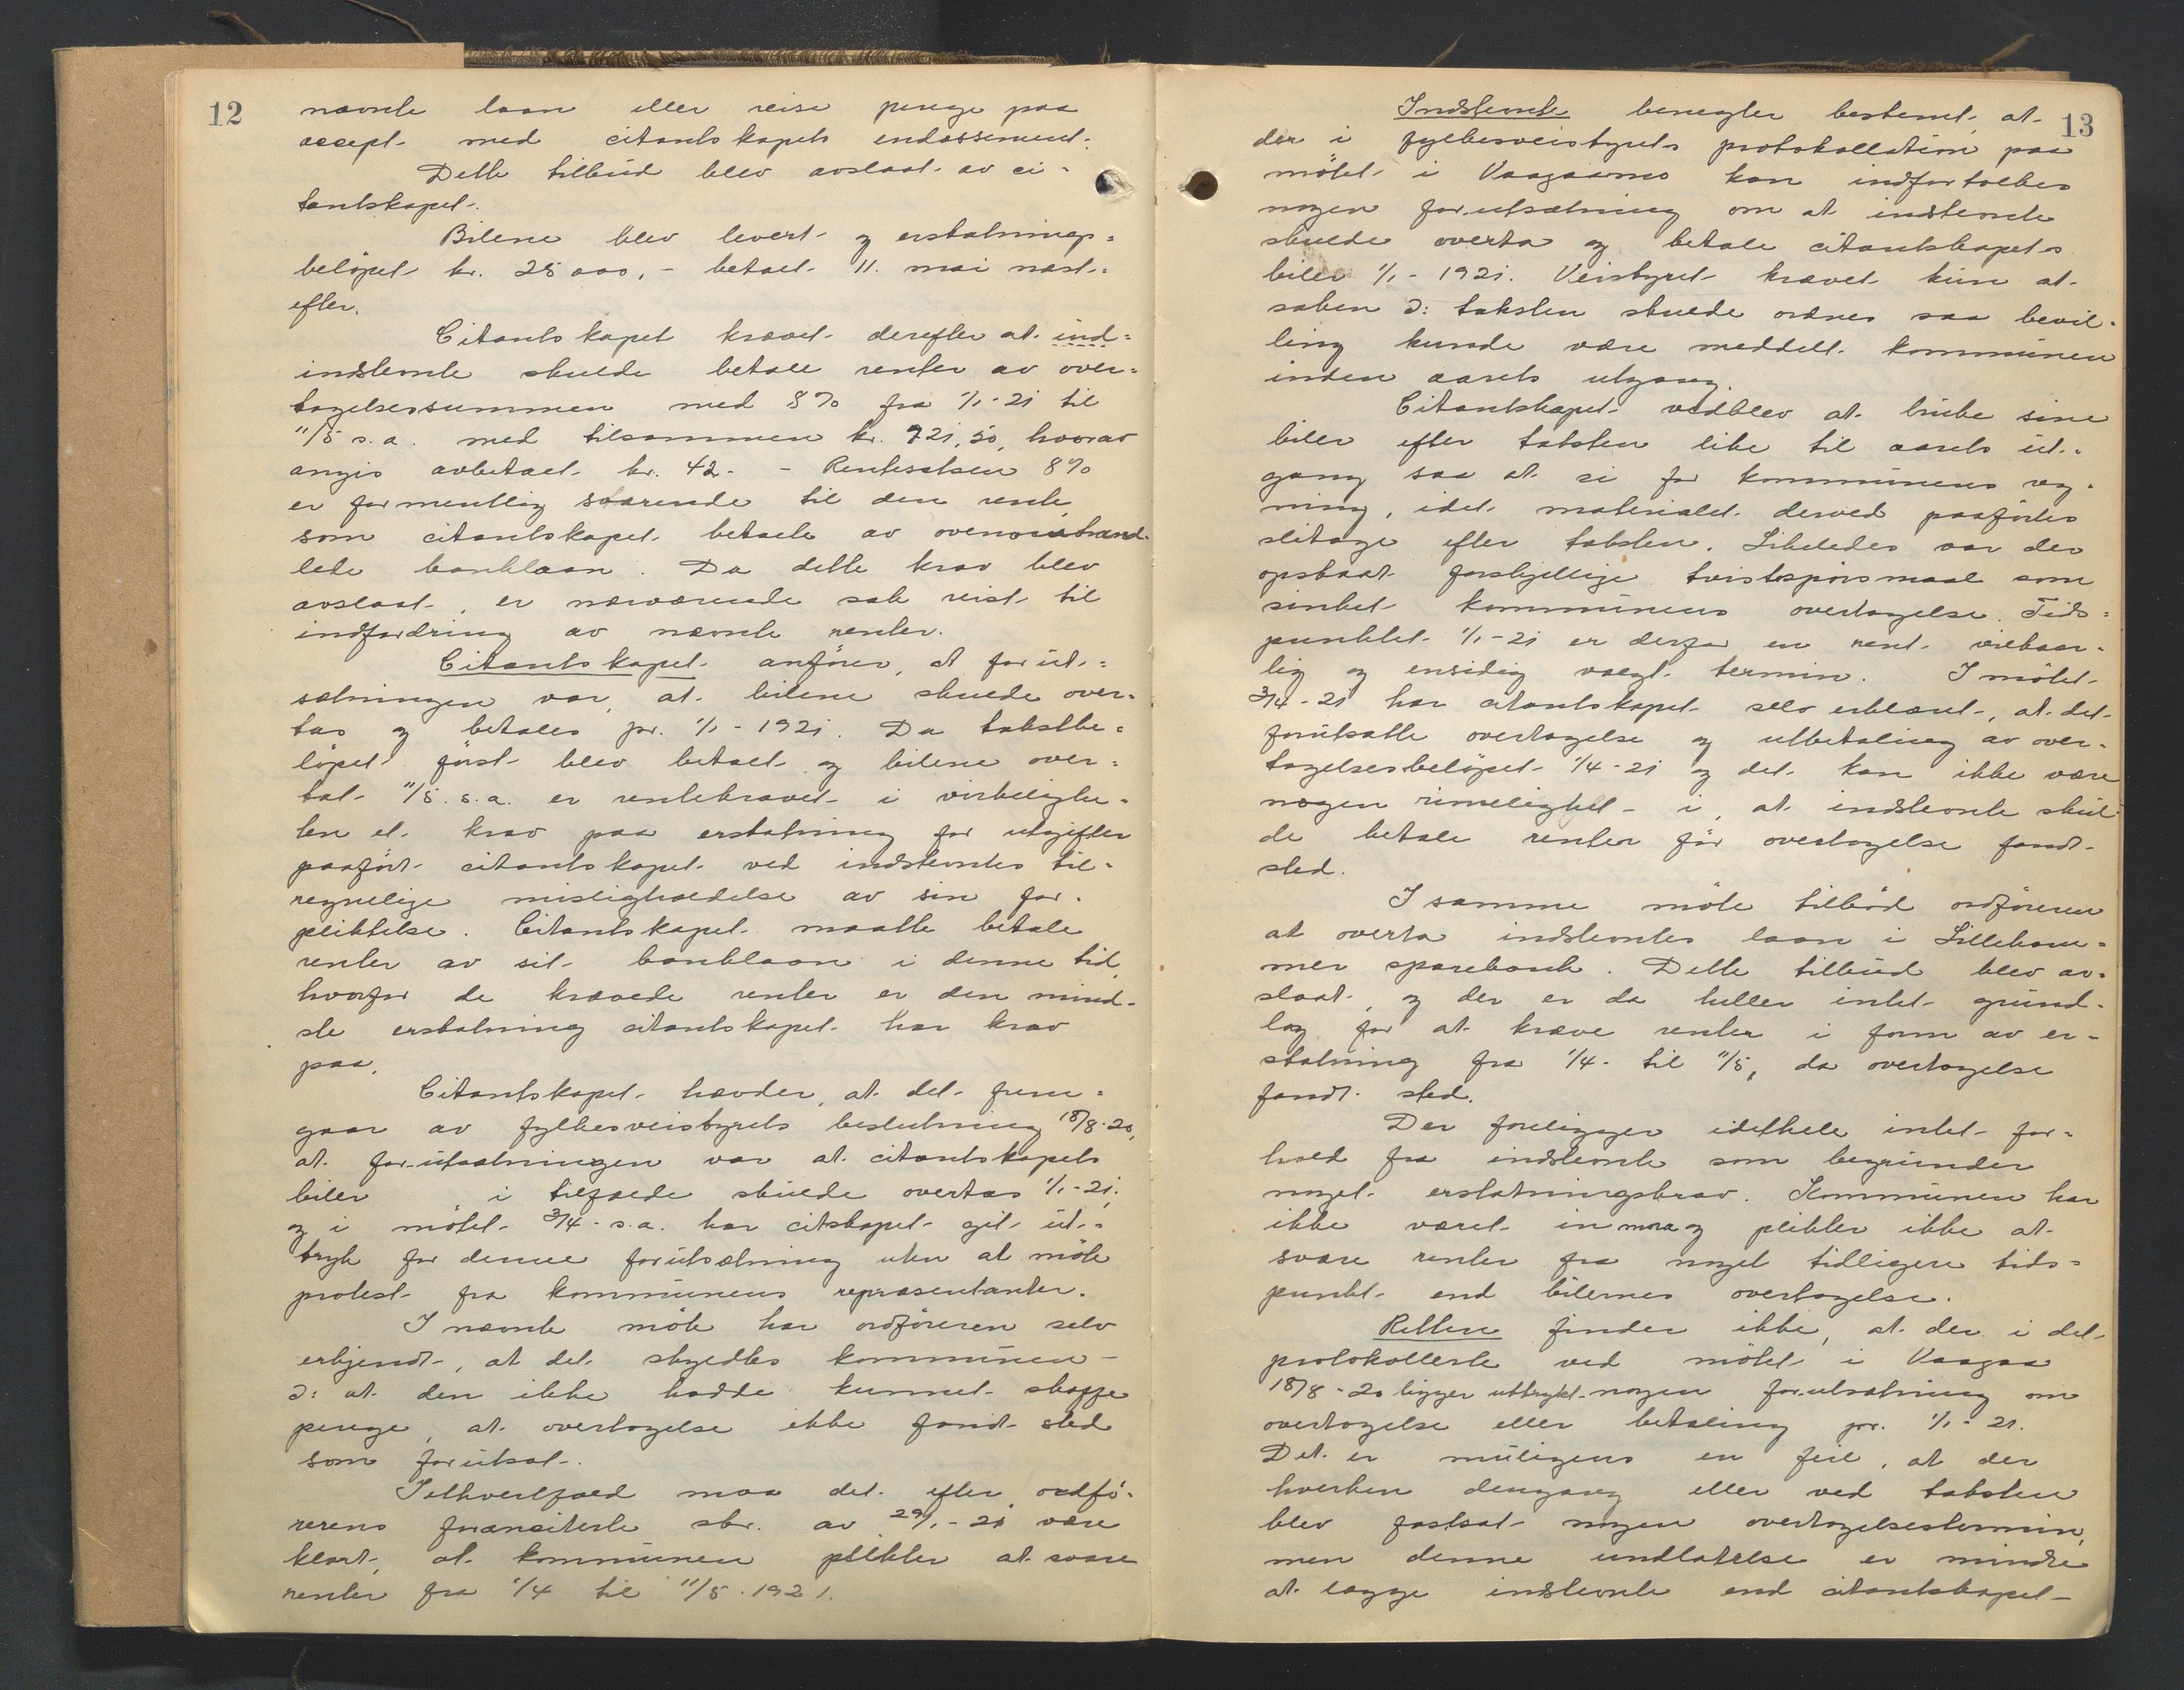 12
nævnte laan eller reise penge paa
accept med citantskapets endossement.
Dette tilbud blev avslaat av ci-
tantskapet.
Bilene blev levert og erstatnings-
beløpet kr. 25 000,- betalt 11. mai næst-
efter.
Citantskapet krævet derefter at ind-
indstevnte skulde betale renter av over-
tagelsessummen med 8% fra 1/1-21 til
11/5 s.a. med tilsammen kr. 721,50, hvorav
angis avbetalt kr. 42.- - Rentesatsen 8%
er formentlig svarende til den rente,
som citantskapet betalte av ovenomhand-
lede banklaan. Da dette krav blev
avslaat, er nærværende sak reist til
indfordring av nævnte renter.
Citantskapet anfører, at forut-
sætningen var, at bilene skulde over-
tas og betales pr. 1/1-1921. Da takstbe-
løpet først blev betalt og bilene over-
tat 11/5 s.a. er rentekravet i virkelighe-
ten et krav paa erstatning for utgifter
paaført citantskapet ved indstevntes til-
regnelige misligholdelse av sin for-
pliktelse. Citantskapet maatte betale
renter av sit banklaan i denne tid,
hvorfor de krævede renter er den mind-
ste erstatning citantskapet har krav
paa.
Citantskapet hævder, at det frem-
gaar av fylkesveistyrets beslutning 18/8-20,
at forutsætningen var at citantskapets
biler i tilfælde skulde overtas 1/1-21,
og i møtet 3/4-s.a. har citskapet git ut-
tryk for denne forutsætning uten at møte
protest fra kommunens repræsentanter.
I nævnte møte har ordføreren selv
erkjendt, at det skyldtes kommunen -
ɔ: at den ikke hadde kunnet skaffe
penge, at overtagelse ikke fandt sted
som forutsat.
I ethvertfald maa det efter ordfø-
rerens foranciterte skr. av 29/1-21 være
klart, at kommunen plikter at svare
renter fra 1/4 til 11/5.1921.
13
Indstevnte benegter bestemt, at
der i fylkesveistyrets protokollation paa
møtet i Vaagaamo kan indfortolkes
nogen forutsætning om at indstevnte
skulde overta og betale citantskapets
biler 1/1-1921. Veistyret krævet kun at
saken ɔ: taksten skulde ordnes saa bevil-
ling kunde være meddelt kommunen
inden aarets utgang.
Citantskapet vedblev at bruke sine
biler efter taksten like til aarets ut-
gang saa at si for kommunens reg-
ning, idet materialet derved paaførtes
slitage efter taksten. Likeledes var der
opstaat forskjellige tvistespørsmaal som
sinket kommunens overtagelse. Tids-
punktet 1/1-21 er derfor en rent vilkaar-
lig og ensidig valgt termin. I møtet
3/4-21 har citantskapet selv erklæret, at det
forutsatte overtagelse og utbetaling av over-
tagelsesbeløpet 1/4-21 og det kan ikke være
nogen rimelighet i, at indstevnte skul-
de betale renter før overtagelse fandt
sted.
I samme møte tilbød ordføreren
at overta indstevntes laan i Lilleham-
mer sparebank. Dette tilbud blev av-
slaat, og der er da heller intet grund-
lag for at kræve renter i form av er-
statning fra 1/4 til 11/5, da overtagelse
fandt sted.
Der foreligger idethele intet for-
hold fra indstevnte som begrunder
noget erstatningskrav. Kommunen har
ikke været in mora og plikter ikke at
svare renter fra noget tidligere tids-
punkt end bilernes overtagelse.
Retten finder ikke, at der i det
protokollerte ved møtet i Vaagaa
18/8-20 ligger uttrykt nogen forutsætning om
overtagelse eller betaling pr. 1/1-21.
Det er muligens en feil, at der
hverken dengang eller ved taksten
blev fastsat nogen overtagelsestermin,
men denne undlatelse er mindre
at lægge indstevnte end citantskapet